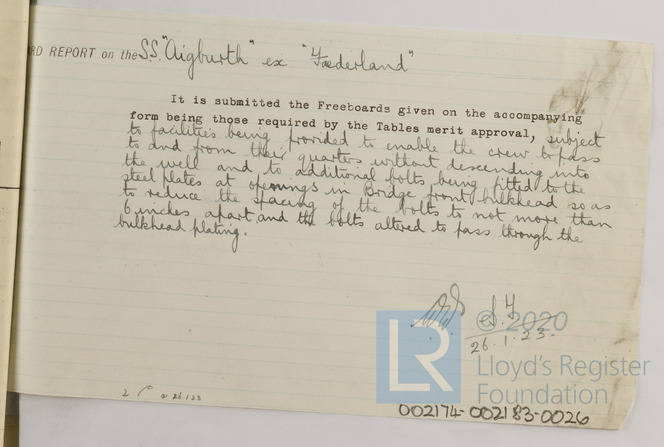 RD REPORT on the S.S. "Aigburth" ex "Fæderland"
It is submitted the Freeboards given on the accompanying
form being those required by the Tables merit approval, subject
to facilities being provided to enable the crew to pass
to and from their quarters without descending into
the well and to additional bolts being fitted to the
steel plates at openings in Bridge front bulkhead so as
to reduce the spacing of the bolts to not more than
6 inches apart and the bolts altered to pass through the
bulkhead plating.
26.1.23.
© 2020
LR
Lloyd's Register
Foundation
002174-002183-0026